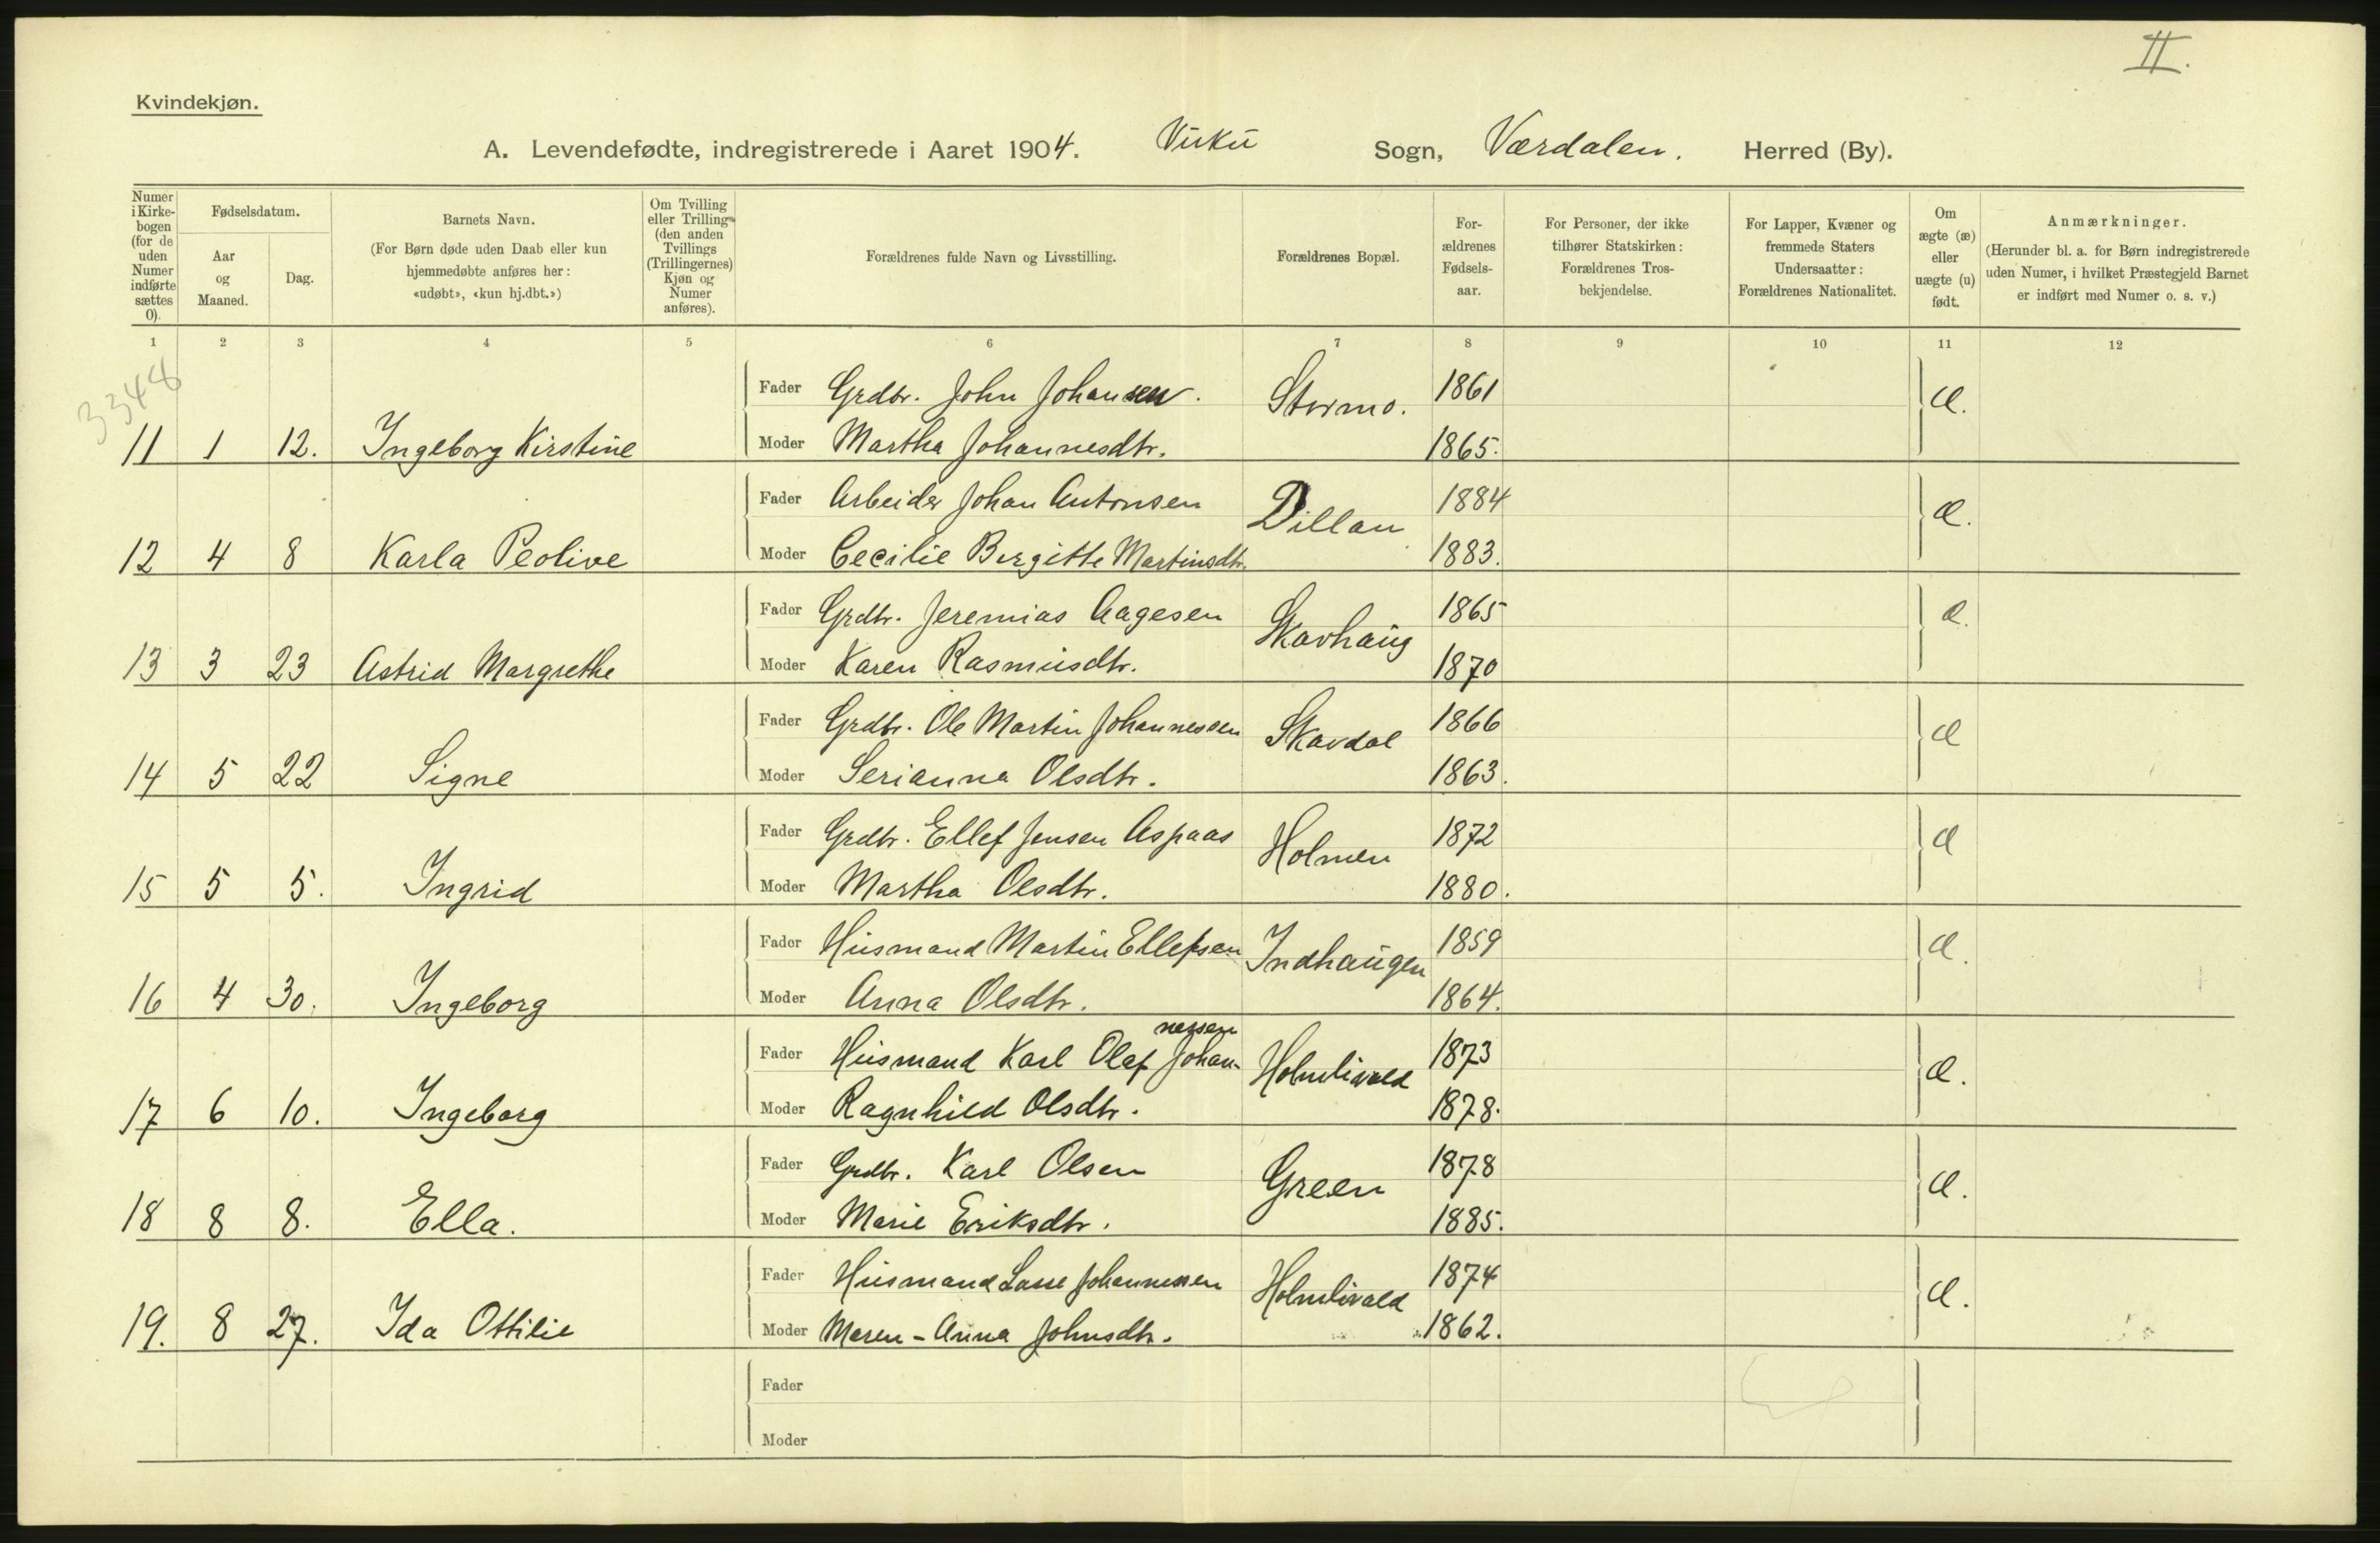 II.
Kvindekjøn.
A. Levendefødte, indregistrerede i Aaret 1904. Vuku Sogn, Værdalen. Herred (By).
Numer i Kirke-bogen (for de uden Numer indførte sættes 0).
Fødselsdatum.
Aar og Maaned.
Dag.
Barnets Navn.
(For Børn døde uden Daab eller kun hjemmedøbte anføres her: «udøbt», «kun hj.dbt.»)
Om Tvilling eller Trilling (den anden Tvillings (Trillingernes) Kjøn og Numer anføres).
Forældrenes fulde Navn og Livsstilling.
Forældrenes Bopæl.
For-ældrenes Fødsels-aar.
For Personer, der ikke tilhører Statskirken: Forældrenes Tros-bekjendelse.
For Lapper, Kvæner og fremmede Staters Undersaatter: Forældrenes Nationalitet.
Om ægte (æ) eller uægte (u) født.
Anmærkninger.
(Herunder bl. a. for Børn indregistrerede uden Numer, i hvilket Præstegjeld Barnet er indført med Numer o. s. v.)
1 2 3 4 5 6 7 8 9 10 11 12
3348
Fader Grdbr. John Johansen. Stormo. 1861 Æ.
11 1 12. Ingeborg Kirstine Moder Martha Johannesdtr. 1865.
Fader Arbeider Johan Antonsen Dillan 1884 Æ.
12 4 8 Karla Peolive Moder Cecilie Bergitte Martinsdtr. 1883.
Fader Grdbr. Jeremias Aagesen Skavhaug 1865 Æ.
13 3 23 Astrid Margrethe Moder Karen Rasmusdtr. 1870
Fader Grdbr. Ole Martin Johannessen Skavdal 1866 Æ
14 5 22 Signe Moder Serianna Olsdtr. 1863.
Fader Grdbr. Ellef Jensen Aspaas Holmen 1872 Æ
15 5 5. Ingrid Moder Martha Olsdtr. 1880.
Fader Husmand Martin Ellefsen Indhaugen 1859 Æ.
16 4 30. Ingeborg Moder Anna Olsdtr. 1864.
Fader Husmand Karl Olaf Johan-nessen Holmlivald 1873 Æ.
17 6 10. Ingeborg Moder Ragnhild Olsdtr. 1878.
Fader Grdbr. Karl Olsen Green 1878 Æ.
18 8 8. Ella. Moder Marie Eriksdtr. 1885.
Fader Husmand Lasse Johannessen Holmlivald 1874 Æ.
19. 8 27. Ida Ottilie Moder Maren-Anna Johnsdtr. 1862.
Fader
Moder